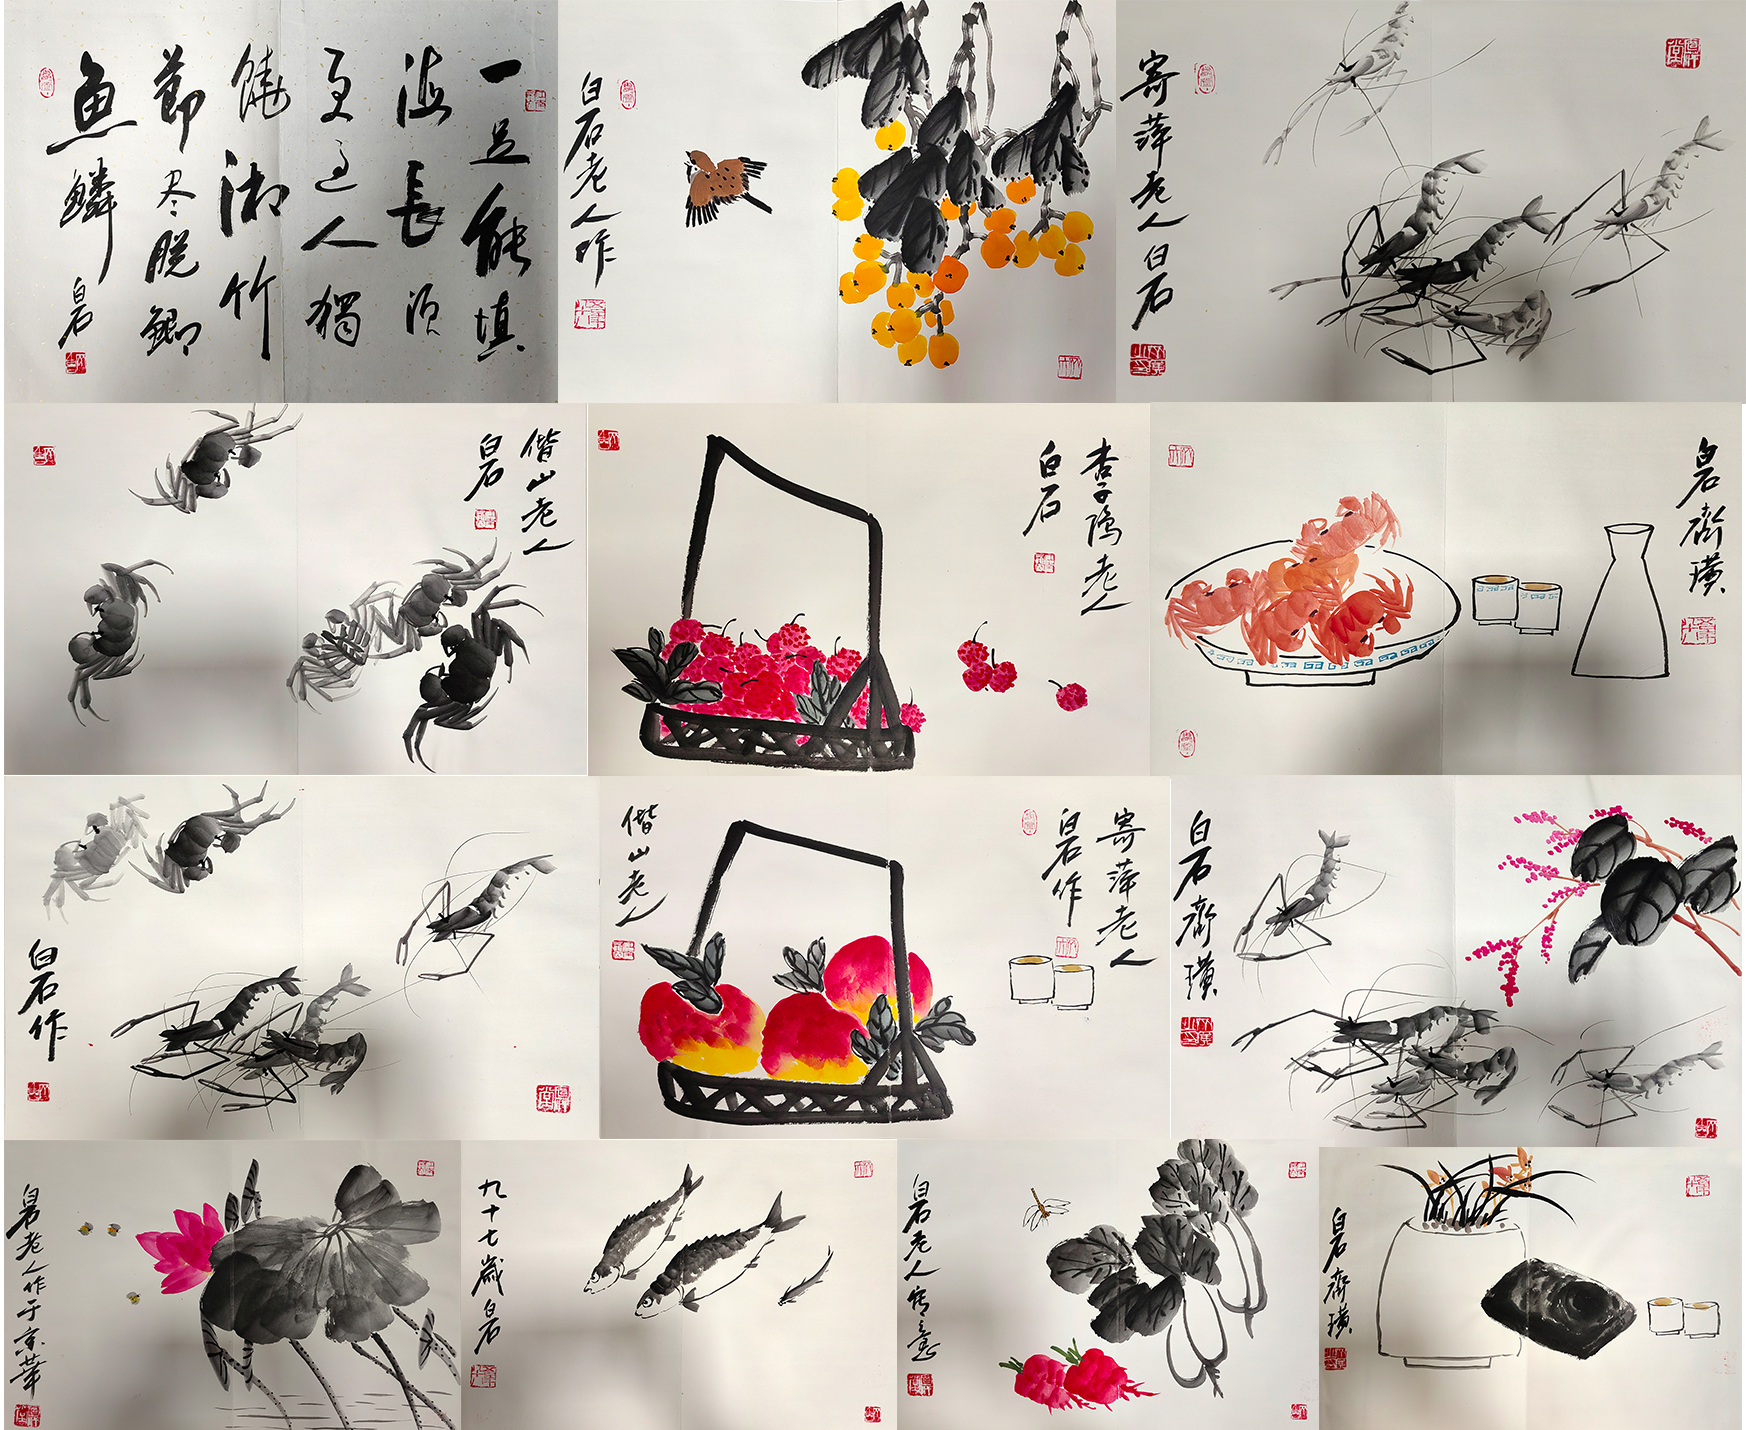 一足能填
海長須
更过人獨
饒湘竹
節尽脱鯽
魚鱗
白石
白石老人作
寄萍老人白石
借山老人
白石
杏子隝老人
白石
白石齊璜
白石作
寄萍老人
白石作
借山老人
白石齊璜
白石老人作于京華
九十七歲白石
白石老人写意
白石齊璜